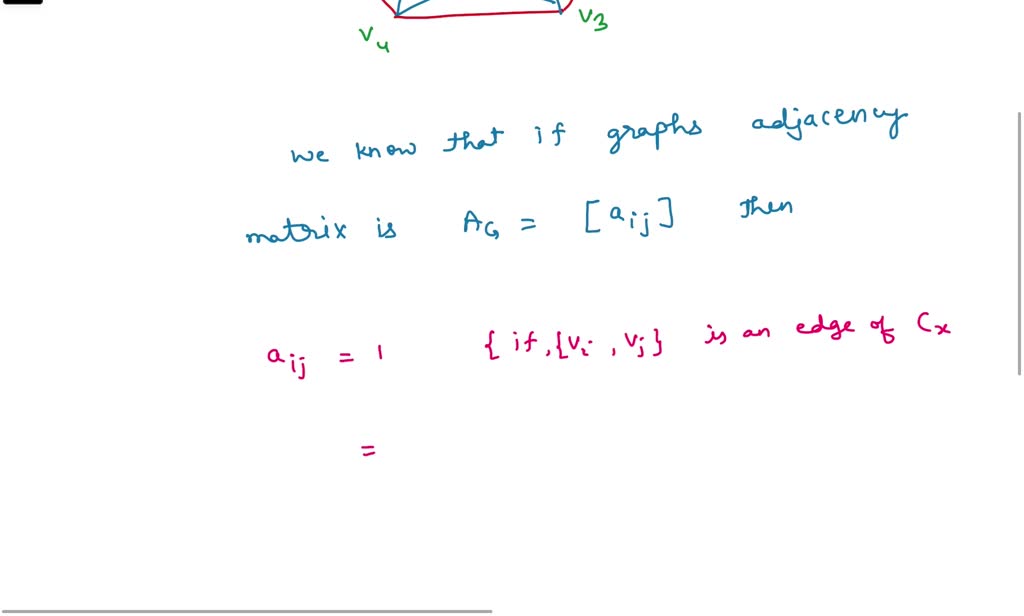 v4
v3
we know that if graphs adjacency
matrix is AG = [aij] then
aij = 1 { if, {vi, vj} is an edge of Cx
=